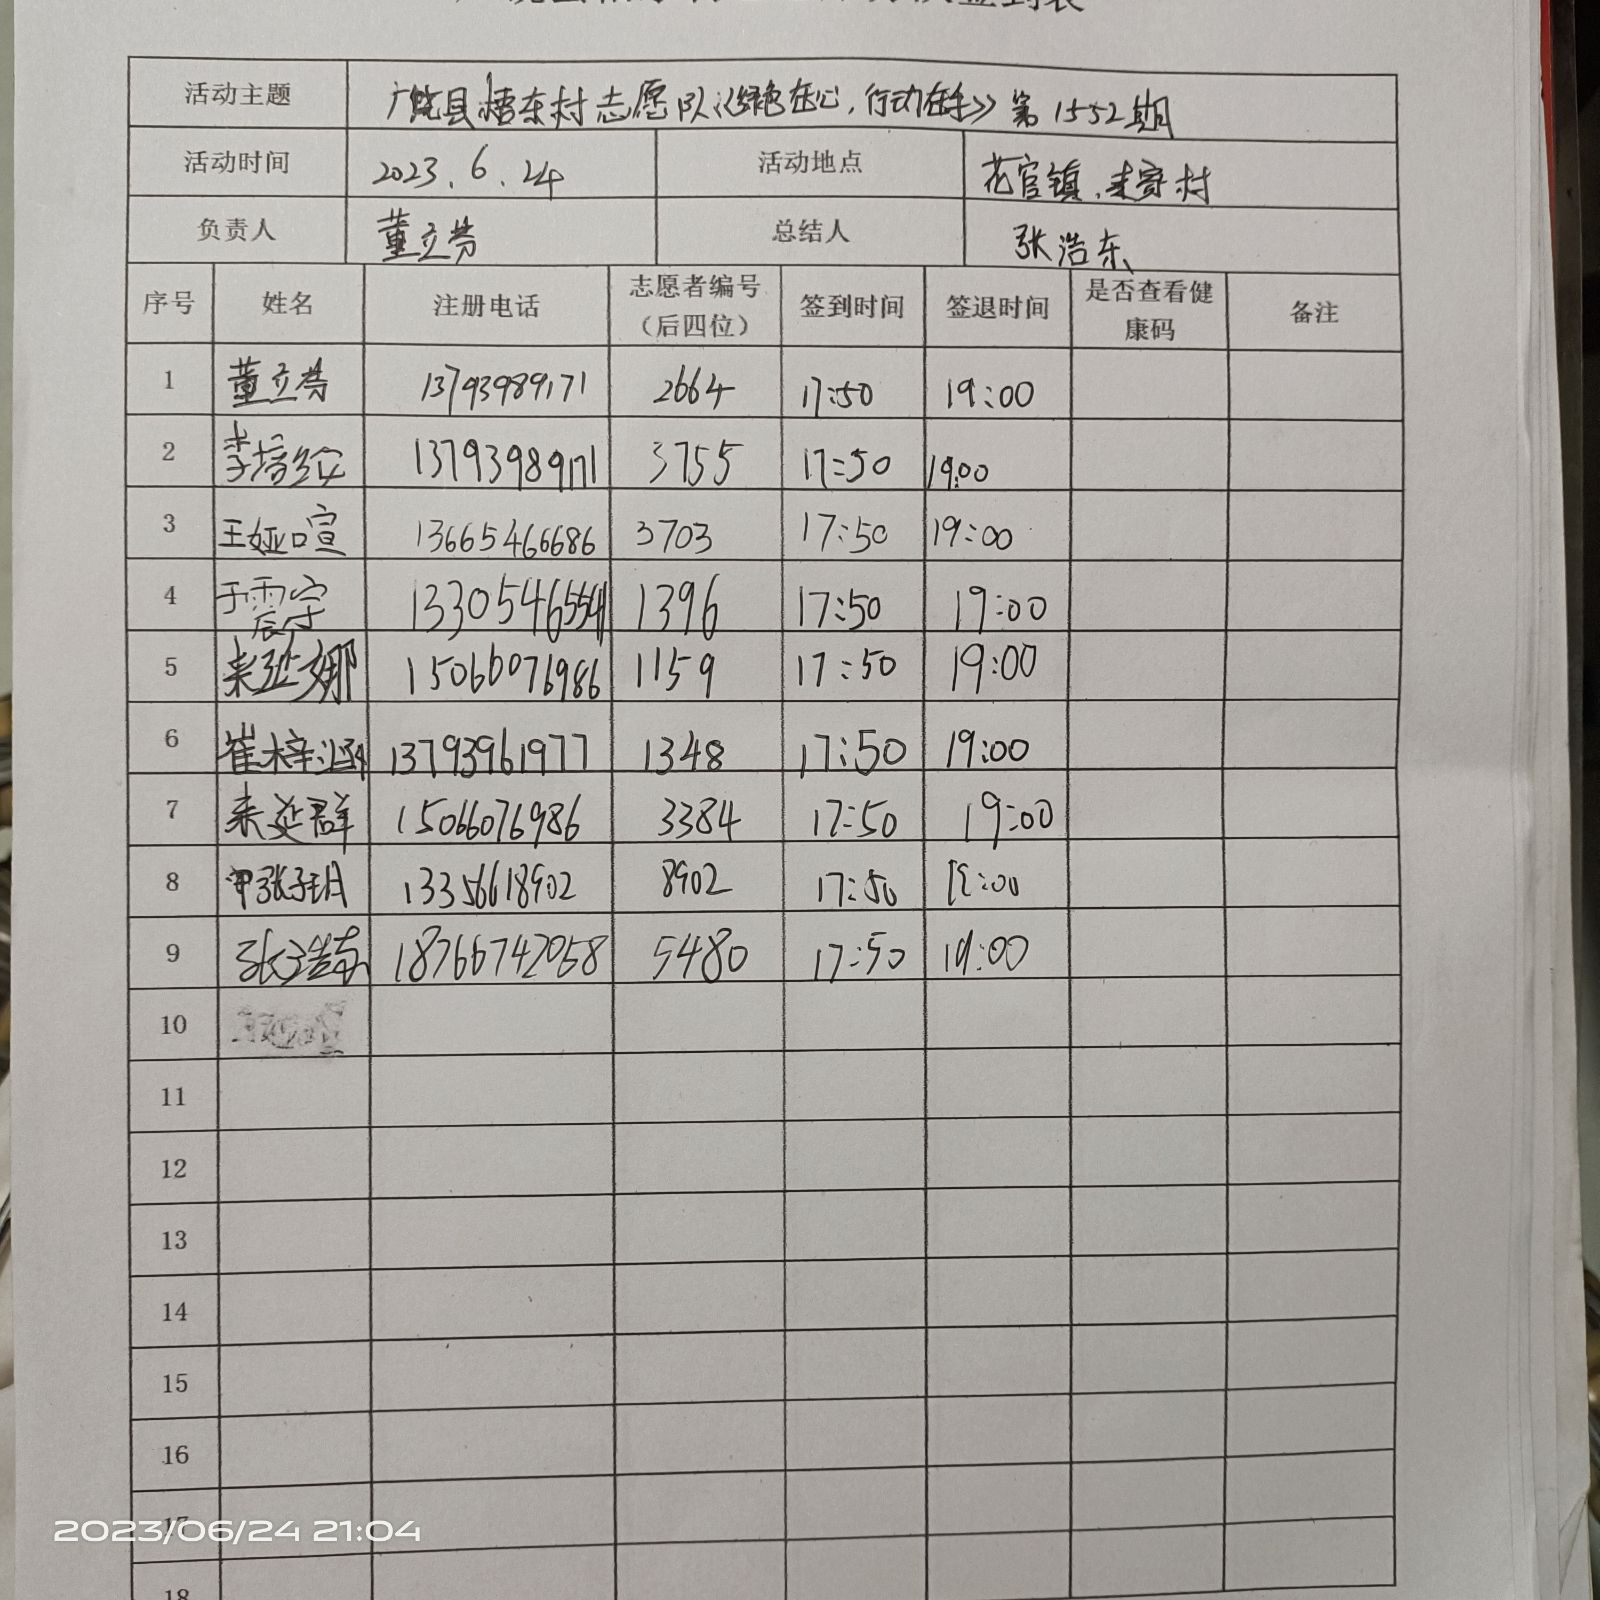 签到表
活动主题 广饶县梧东村志愿队《绿色在心,行动在手》第1552期
活动时间 2023.6.24 活动地点 花官镇.来寄村
负责人 董立芬 总结人 张浩东
序号 姓名 注册电话 志愿者编号（后四位） 签到时间 签退时间 是否查看健康码 备注
1 董立芬 13793989171 2664 17:50 19:00
2 李培 13793989171 3755 17:50 19:00
3 王娅喧 13665466686 3703 17:50 19:00
4 于震宇 1396 17:50 19:00
5 来延娜 15066076986 1159 17:50 19:00
6 崔梓涵 13793961977 1348 17:50 19:00
7 来延群 15066076986 3384 17:50 19:00
8 张子玥 13356618902 8902 17:50 19:00
9 张浩东 18766742058 5480 17:50 19:00
10
11
12
13
14
15
16
17
18
2023/06/24 21:04